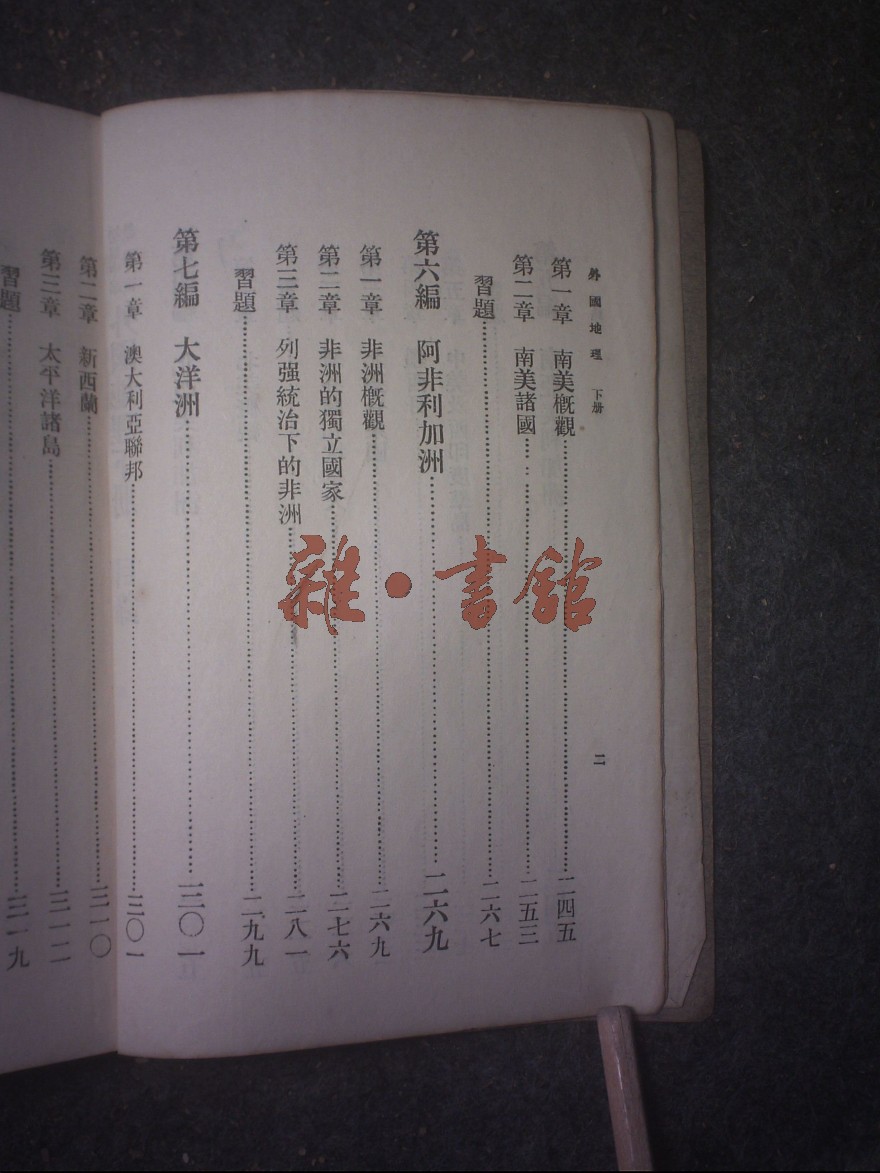 外國地理 下册
二
第一章 南美槪觀……二四五
第二章 南美諸國……二五三
習題……二六七
第六編 阿非利加洲……二六九
第一章 非洲槪觀……二六九
第二章 非洲的獨立國家……二七六
第三章 列强統治下的非洲……二八一
習題……二九九
第七編 大洋洲……三〇一
第一章 澳大利亞聯邦……三〇一
第二章 新西蘭……三一〇
第三章 太平洋諸島……三一二
習題……三一九
雜·書館